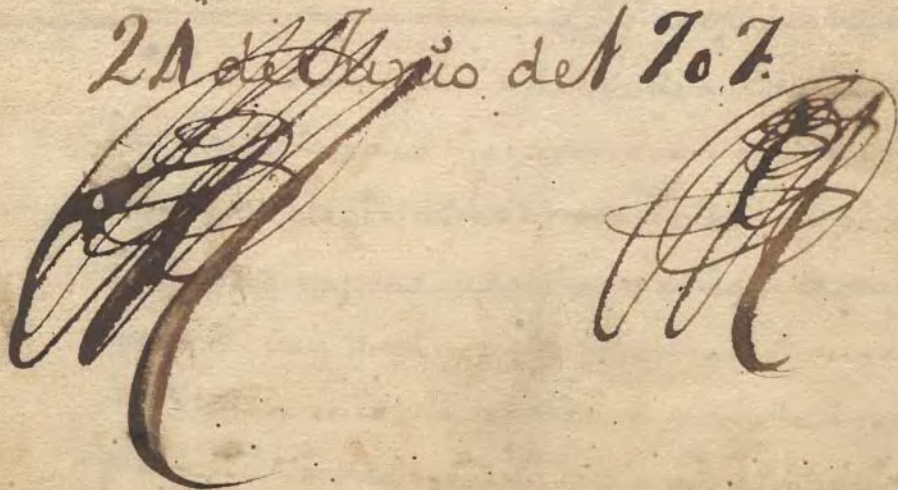 24 de Junio del 707.